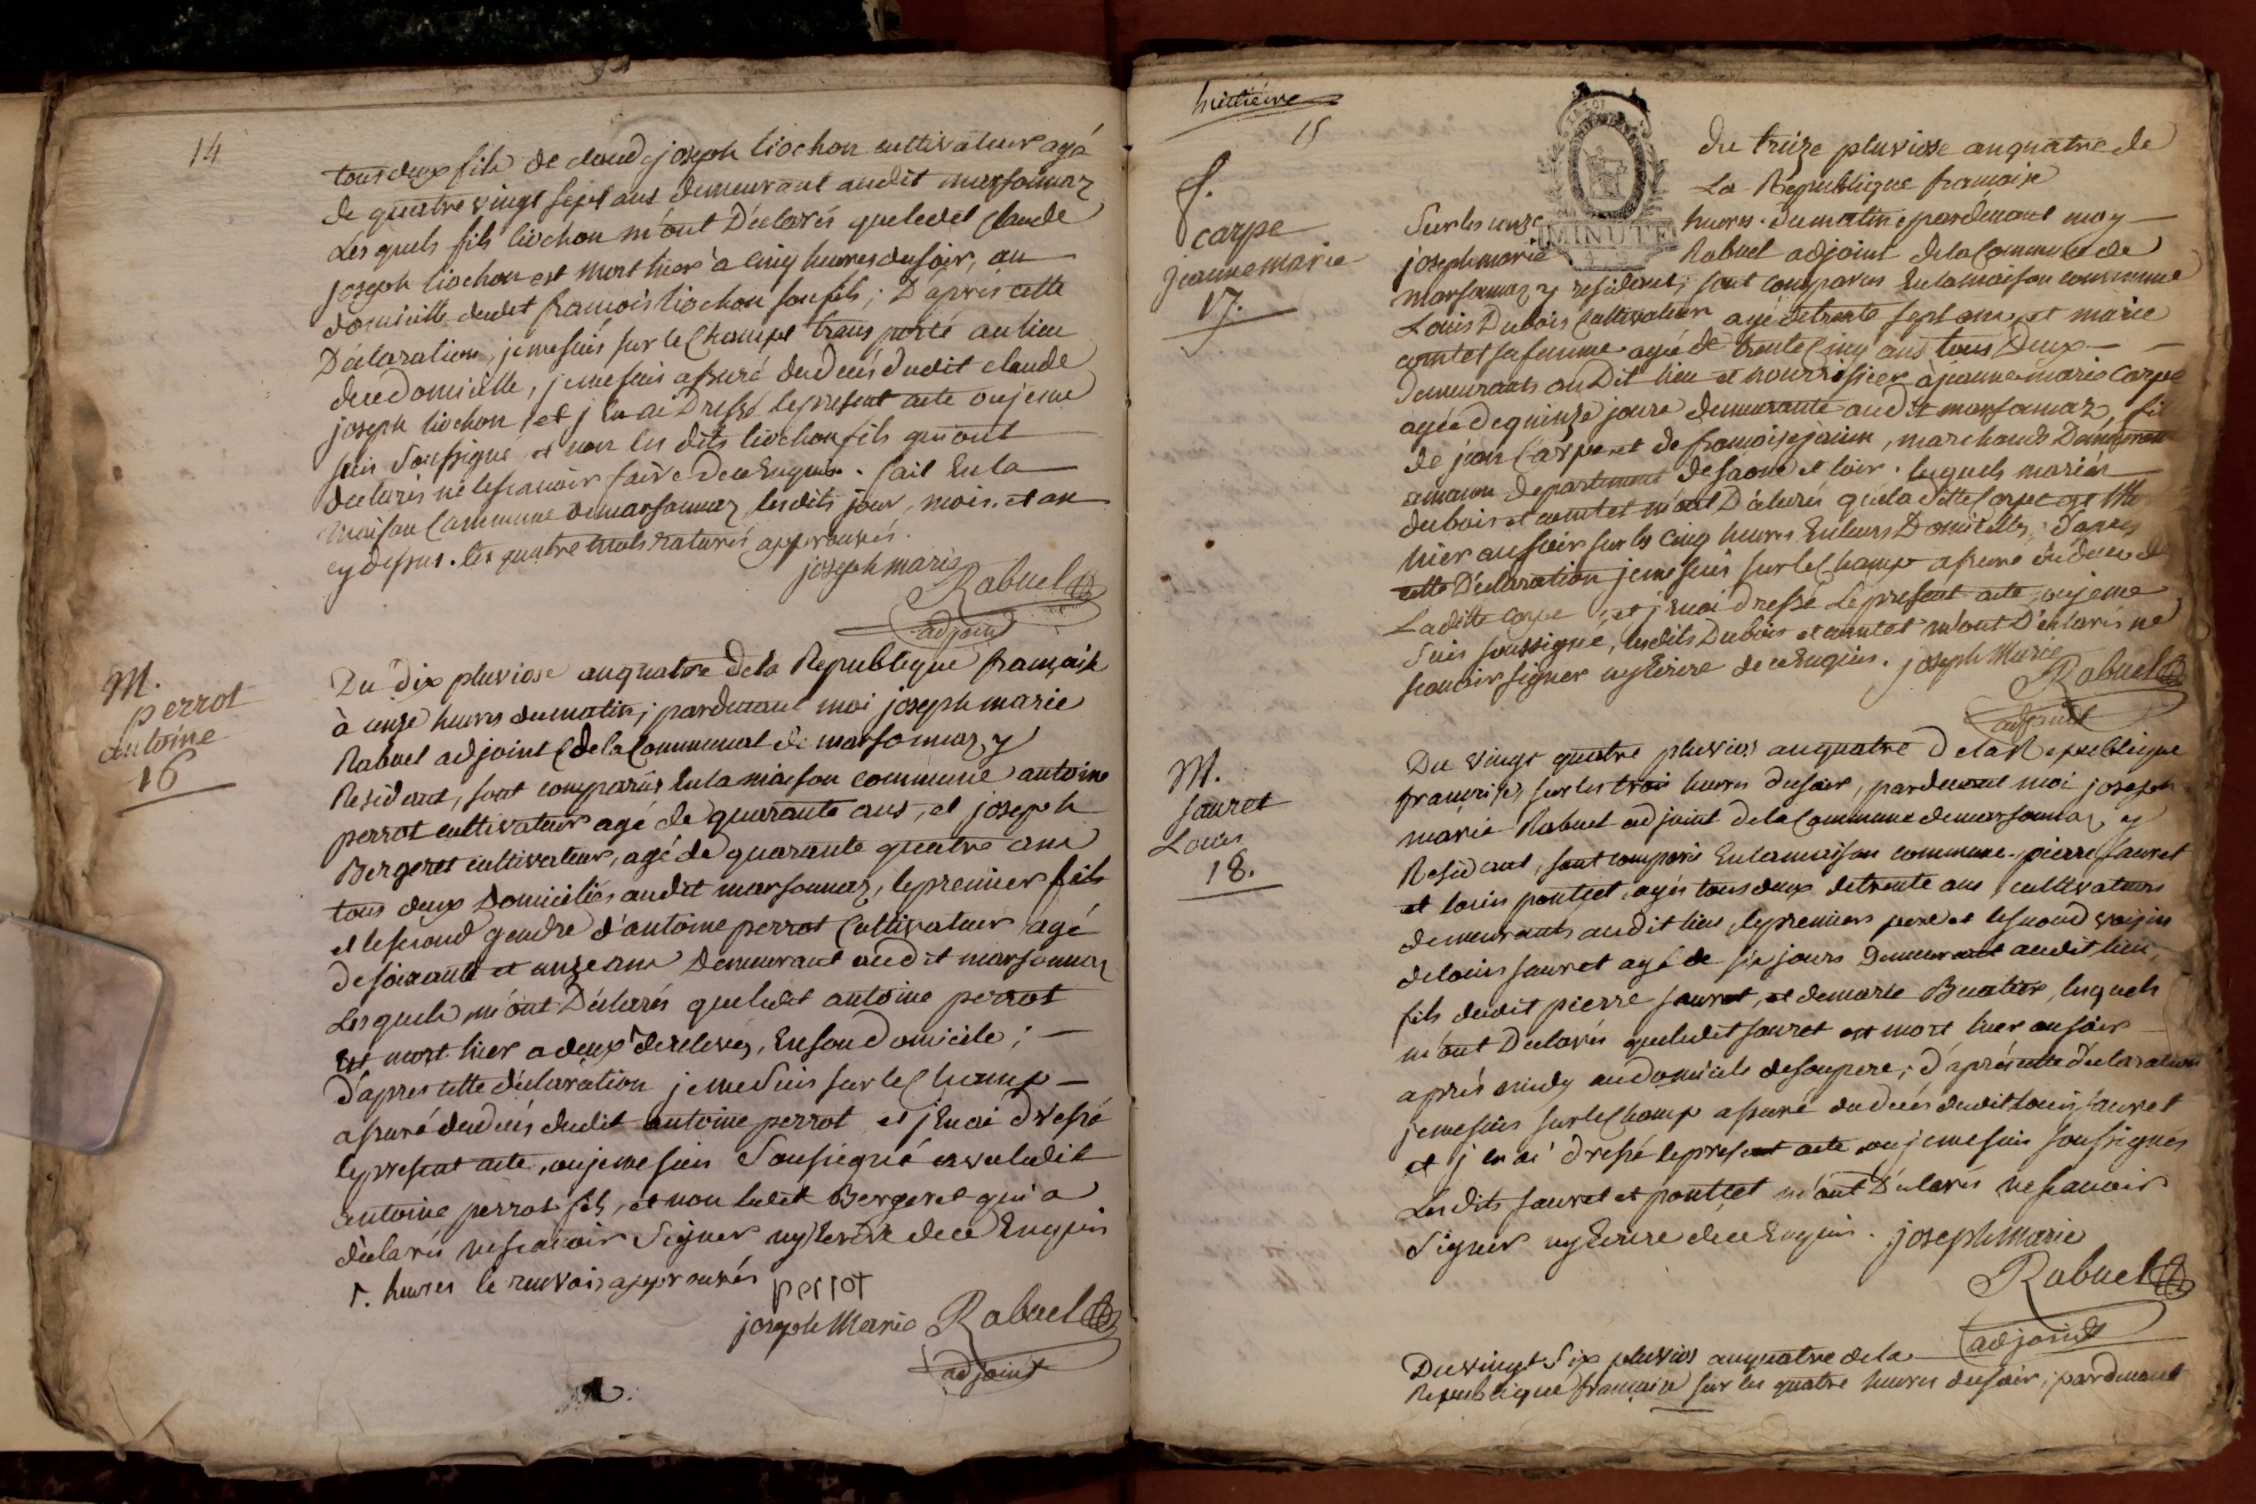 14
tous deux fils de claude joseph liochon cultivateur agé
de quatre vingt sept ans demeurant audit marsonnaz
Les quels fils liochon m'ont Déclarés queledit Claude
joseph liochon est mort hier à cinq heures dusoir, au
domicille dudit françois liochon son fils; D'après cette
Déclaration, jemesuis sur le Champt transporté au lieu
dece domicille, jeme suis assuré du Decés dudit claude
joseph liochon, et j'en ai Dressé lepresent acte ou jeme
suis soussigné et non les dits liochon fils qui m'ont
declarés ne lescavoir faire Dece Enquis. fait En la
maison Commune demarsonnaz lesdits jour, mois et an
cy dessus. les quatre mots raturés approuvés.
joseph marie
Rabuel
adjoint
M.
perrot
antoine
16
Du dix pluviose an quatre dela Republique française
à onze heures dumatin; pardevant moi joseph marie
Rabuel adjoint de la Commune de marsonnaz, y
Residant, sont comparus En la maison commune antoine
perrot cultivateur agé de quarante ans, et joseph
Bergeret cultivateur, agé de quarante quatre ans
tous deux Domiciliés audit marsonnaz, lepremier fils
et lesecond gendre d'antoine perrot Cultivateur agé
desoixante et onze ans Demeurant audit marsonnaz
Les quels m'ont Déclarés queledit antoine perrot
Est mort hier a deux derelevés, En son Domicile;
D'apres cette déclaration jeme Suis sur le Champ
assuré dudecés dudit antoine perrot et j'En ai dressé
lepresent acte, ou jeme suis Soussigné avec ledit
antoine perrot fils, et non ledit Bergeret qui a
déclarés nescavoir Signer ny Ecrire de ce Enquis
heures le renvois approuvés
perrot
joseph Marie Rabuel
adjoint
huitieme
15
f.
carpe
jeanne marie
17.
Du treize pluviose an quatre de
La Republique française
MINUTE
Sur les onze heures dumatin pardevant moy
joseph marie Rabuel adjoint dela Commune de
marsonnaz y residant, sont comparus En la maison commune
Louis Dubois Cultivateur agé detrente sept ans, et marie
comtet sa femme agée de trente Cinq ans tous Deux
Demeurants au Dit lieu et nourrissier à jeanne marie Carpe
agée de quinze jours demeurante audit marsonnaz, fille
de jean Carpe et de françoise , marchands
departement de saone et loire. lesquels mariés
dubois et comtet m'ont Déclarés quela ditte Carpe est
hier au soir sur les Cinq heures En leurs Domicilles, d'apres
cette Déclaration jeme suis sur le Champ assuré du deces de
Laditte Carpe, et j'En ai dressé lepresent acte, ou jeme
Suis soussigné, lesdits Dubois et comtet m'ont Déclarés ne
scavoir signer ny Ecrire de ce Enquis. joseph Marie
Rabuel
adjoint
M.
sauret
Louis
18.
Du vingt quatre pluvios an quatre De la Republique
française sur les trois heures dusoir, pardevant moi joseph
marie Rabuel adjoint dela Commune demarsonnaz, y
Residant, sont comparus En la maison commune, pierre sauret
et louis pontet, agés tous deux detrente ans, cultivateurs
demeurants audit lieu, lepremier pere et lesecond voisin
delouis sauret agé de six jours Demeurant audit lieu,
fils dudit pierre sauret, et demarie Buatier, lesquels
m'ont Déclarés queledit sauret est mort hier au soir
après midy au domicile desonpere; d'après cette déclaration
jeme suis sur le Champ assuré du decés dudit louis sauret
et j'en ai dressé lepresent acte ou jeme suis soussignés
Les dits sauret et pontet m'ont Déclarés ne scavoir
Signer ny Ecrire de ce Enquis. joseph Marie
Rabuel
adjoint
Du vingt Six pluvios an quatre de la
Republique française sur les quatre heures dusoir, pardevant